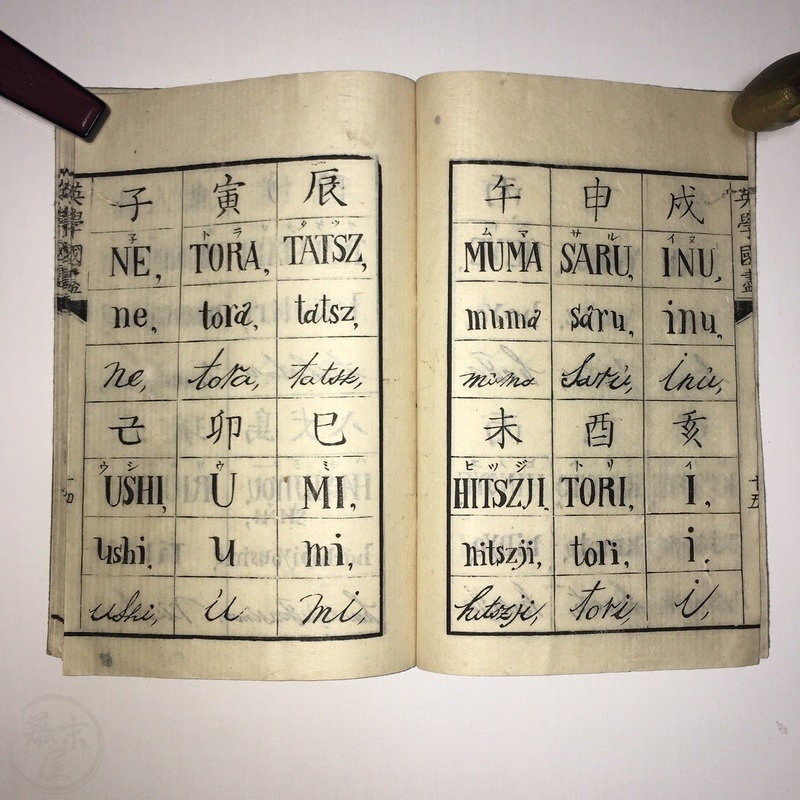 子 寅 辰
子 トラ タツ
NE, TORA, TATSZ,
ne, tora, tatsz,
ne, tora, tatsz,
己 卯 巳
ウシ ウ ミ
USHI, U MI,
ushi, u mi,
ushi, u mi,
午 申 戌
ムマ サル イヌ
MUMA SARU, INU,
muma saru, inu,
muma Saru, Inu,
未 酉 亥
ヒツジ トリ イ
HITSZJI, TORI, I,
hitszji, tori, i,
hitszji, tori, i,
英學國
英學國畫
十五